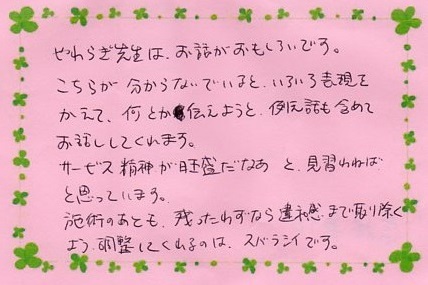 やわらぎ先生は、お話がおもしろいです。
こちらが分からないでいると、いろいろ表現を
かえて、何とか伝えようと、例え話も含めて
お話ししてくれます。
サービス精神が旺盛だなあと、見習わねば
と思っています。
施術のあとも、残ったわずかな違和感まで取り除く
よう、調整してくれるのは、スバラシイです。